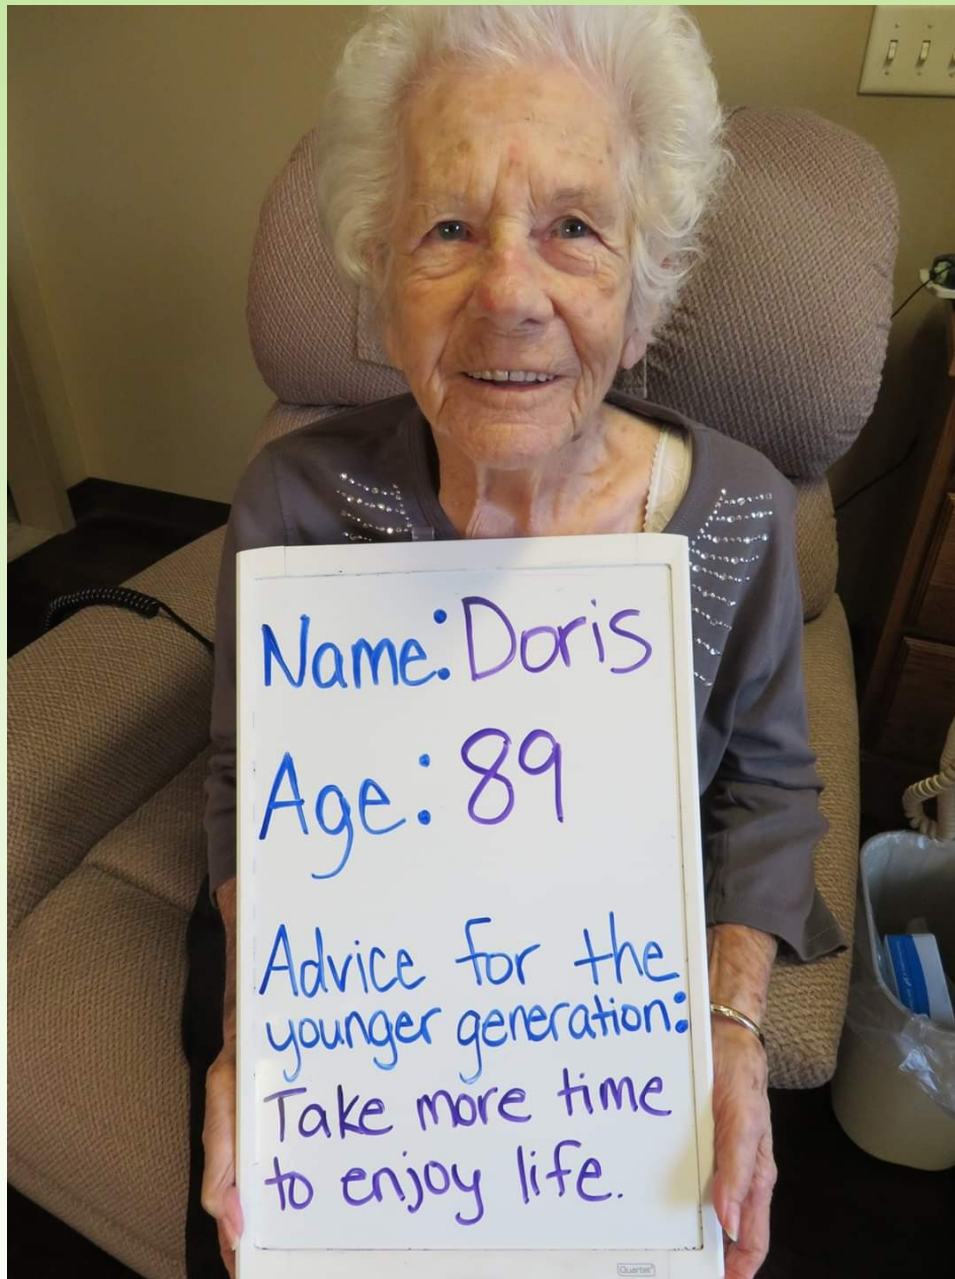 Name: Doris
Age: 89
Advice for the
younger generation:
Take more time
to enjoy life.
Quartet